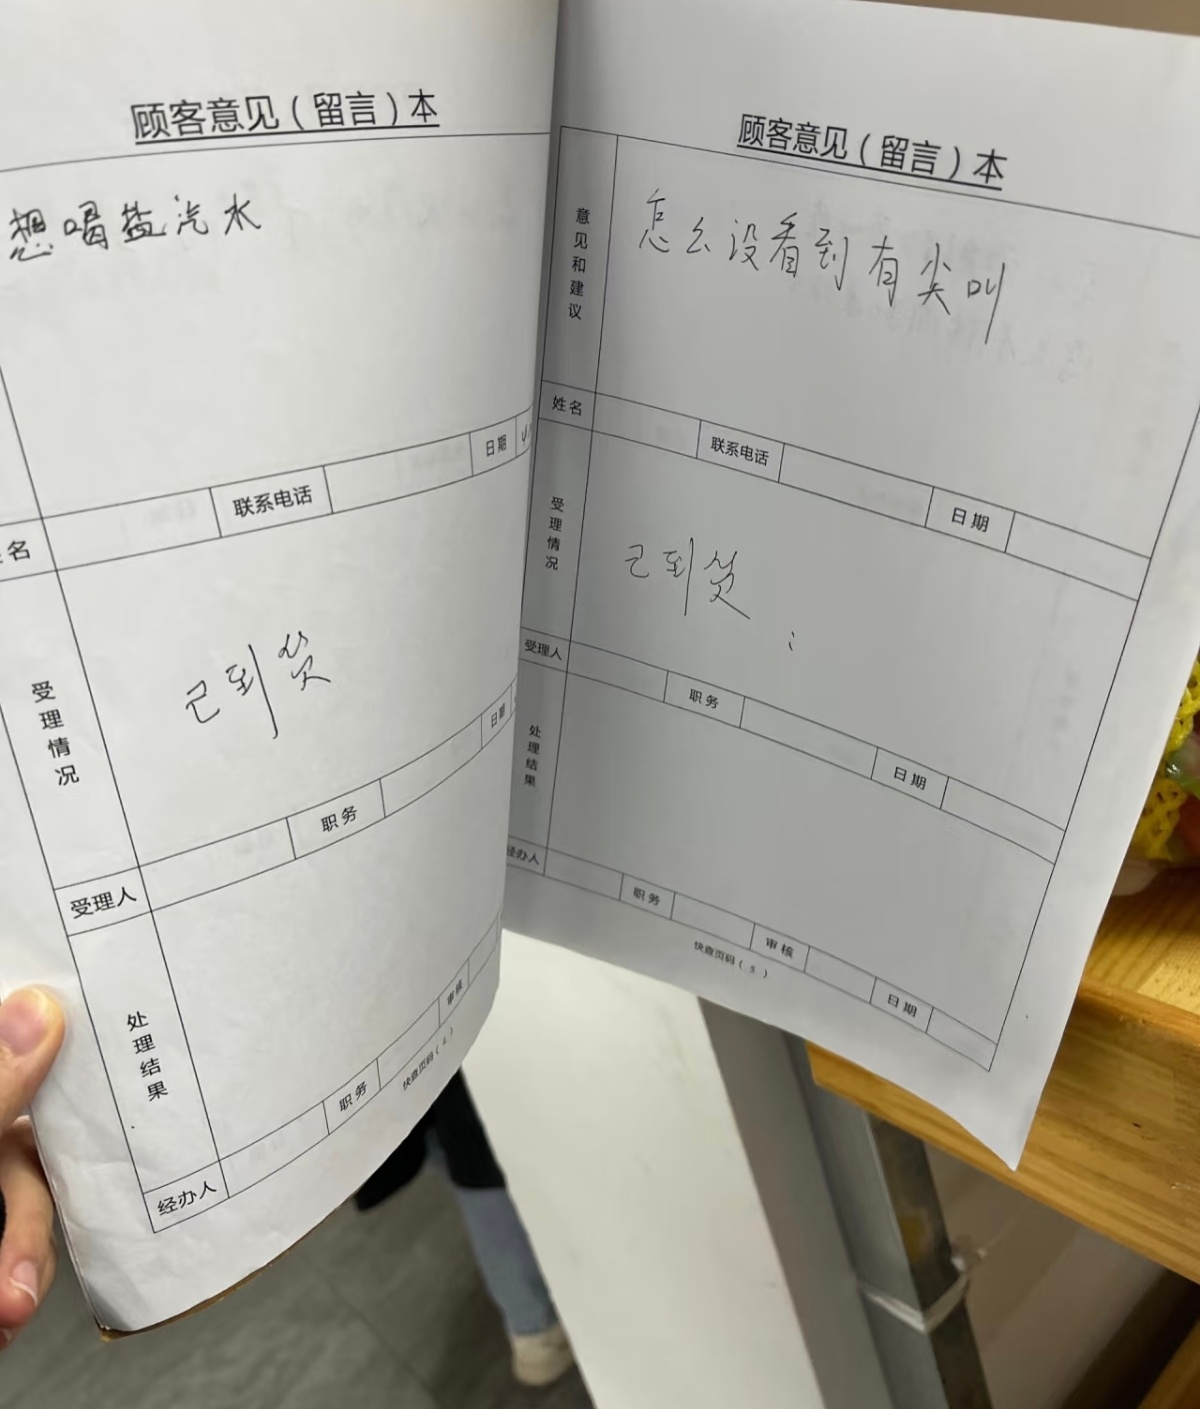 顾客意见（留言）本
想喝盐汽水
名
联系电话
日期
受理情况
已到货
受理人
职务
日期
处理结果
经办人
职务
审核
快查页码（4）
顾客意见（留言）本
意见和建议
怎么没看到有尖叫
姓名
联系电话
日期
受理情况
已到货
受理人
职务
日期
处理结果
经办人
职务
审核
日期
快查页码（5）